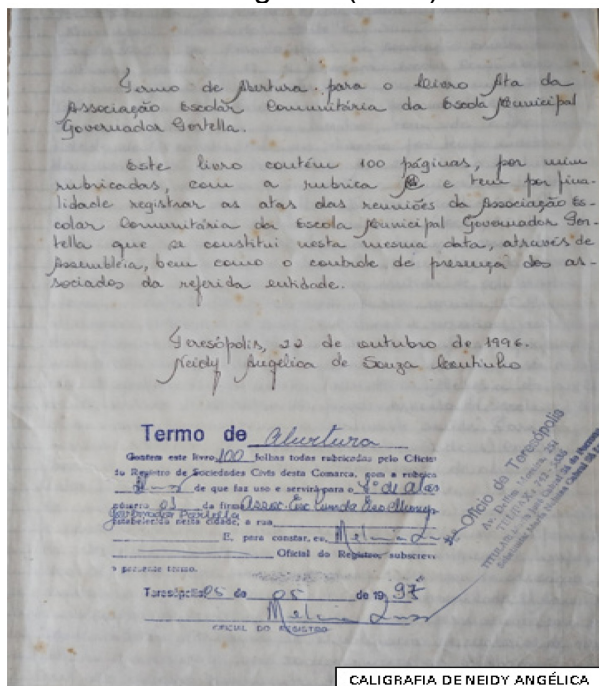 Termo de Abertura para o Livro Ata da
Associação Escolar Comunitária da Escola Municipal
Governador Portella.
Este livro contém 100 páginas, por mim
rubricadas, com a rubrica e tem por fina-
lidade registrar as atas das reuniões da Associação Es-
colar Comunitária da Escola Municipal Governador Por-
tella que se constitui nesta mesma data, através de
Assembléia, bem como o controle de presença dos as-
sociados da referida entidade.
Teresópolis, 22 de outubro de 1996.
Neidy Angélica de Souza Coutinho
Termo de Abertura
Contem este livro 100 folhas todas rubricadas pelo Oficio
do Registro de Sociedades Civis desta Comarca, com a rubrica
de que faz uso e servirá para o Lº de atas
número 01 da firma Assoc. Esc. Comda Esc. Municip.
Governador Portella
estabelecida nesta cidade, a rua
E, para constar, eu,
Oficial do Registro, subscrevi
o presente termo.
Teresópolis 05 de 05 de 19 97
OFICIAL DO REGISTRO
Oficio de Teresópolis
CALIGRAFIA DE NEIDY ANGÉLICA